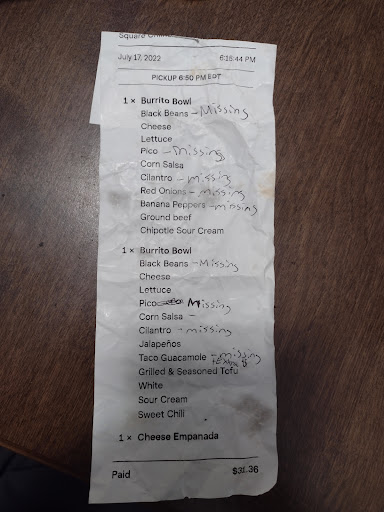 Square Online
July 17, 2022 6:15:44 PM
PICKUP 6:50 PM EDT
1 × Burrito Bowl
Black Beans - Missing
Cheese
Lettuce
Pico - missing
Corn Salsa
Cilantro - missing
Red Onions - missing
Banana Peppers - missing
Ground beef
Chipotle Sour Cream
1 × Burrito Bowl
Black Beans - Missing
Cheese
Lettuce
Pico Missing
Corn Salsa -
Cilantro - missing
Jalapeños
Taco Guacamole - missing
Grilled & Seasoned Tofu
White
Sour Cream
Sweet Chili
1 × Cheese Empanada
Paid $31.36